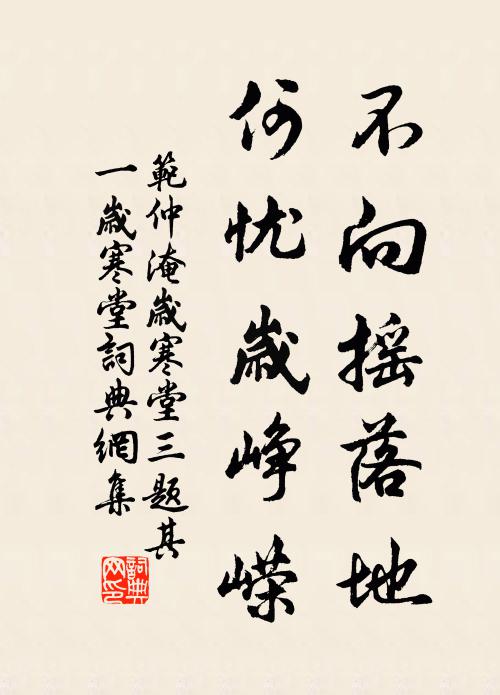 不向摇落地
何忧歲峥嵘
範仲淹歲寒堂三题其
一歲寒堂詞典網集
詞典网印